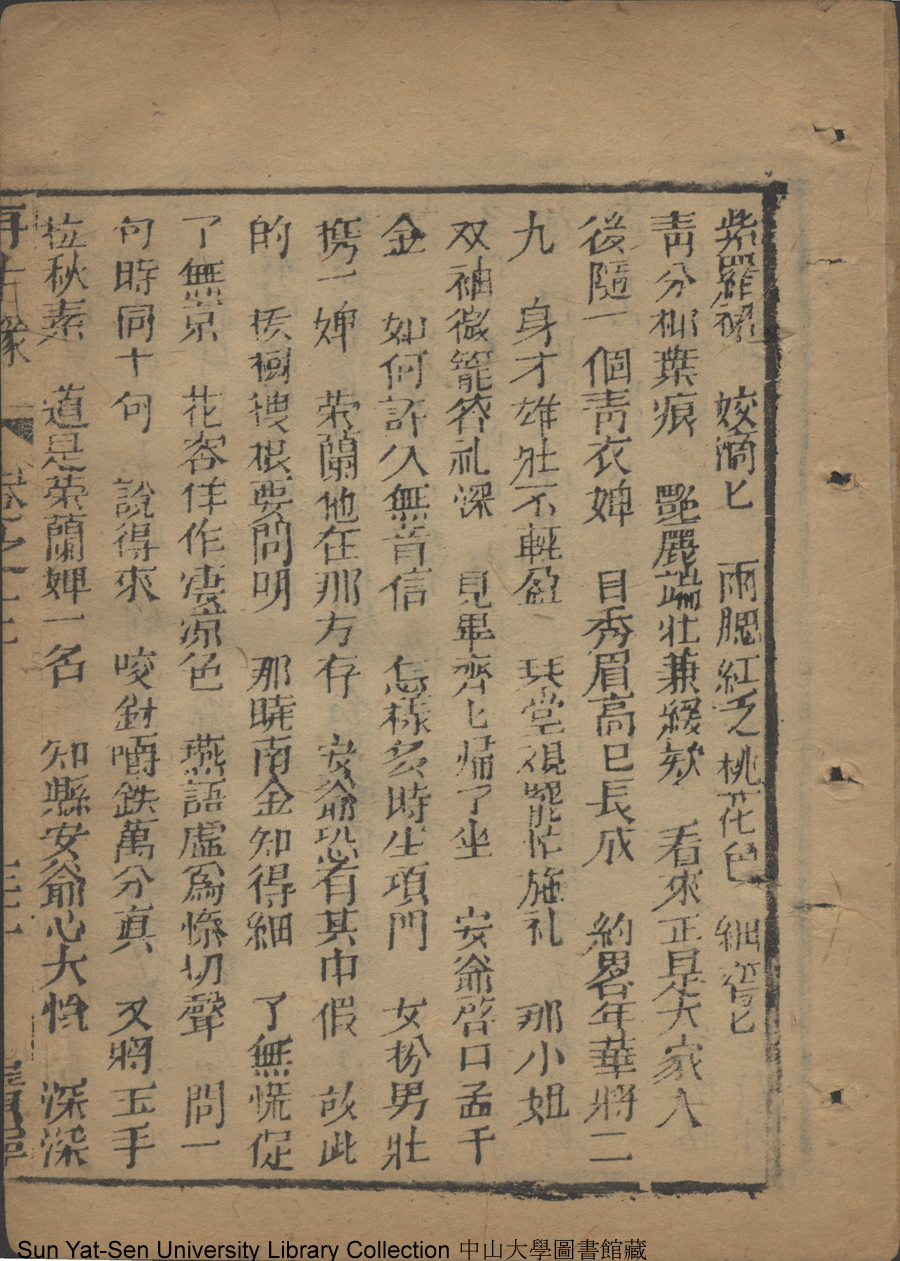 紫羅裙　姣滴匕　兩腮紅乏桃花色　細窄匕
青分柳葉痕　艷麗端壮兼緩欵　看來正是大家人
後隨一個青衣婢　目秀眉高已長成　約畧年華將二
九　身才雄壯不輕盈　琴堂視罷忙施礼　那小姐
双袖微籠答礼深　見畢齊匕帰了坐　安爺啓口孟千
金　如何許久無音信　怎樣多時在項門　女扮男壯
携一婢　荣蘭他在那方存　安爺恐有其中假　故此
的　挨樹搜根要問明　那曉南金知得細　了無慌促
了無京　花容佯作凄凉色　燕語虛爲慘切聲　問一
句時同十句　說得來　咬釘嚼鉄萬分真　又將玉手
拉秋素　道是荣蘭婢一名　知縣安爺心大怡　深深
再生緣　卷之十七